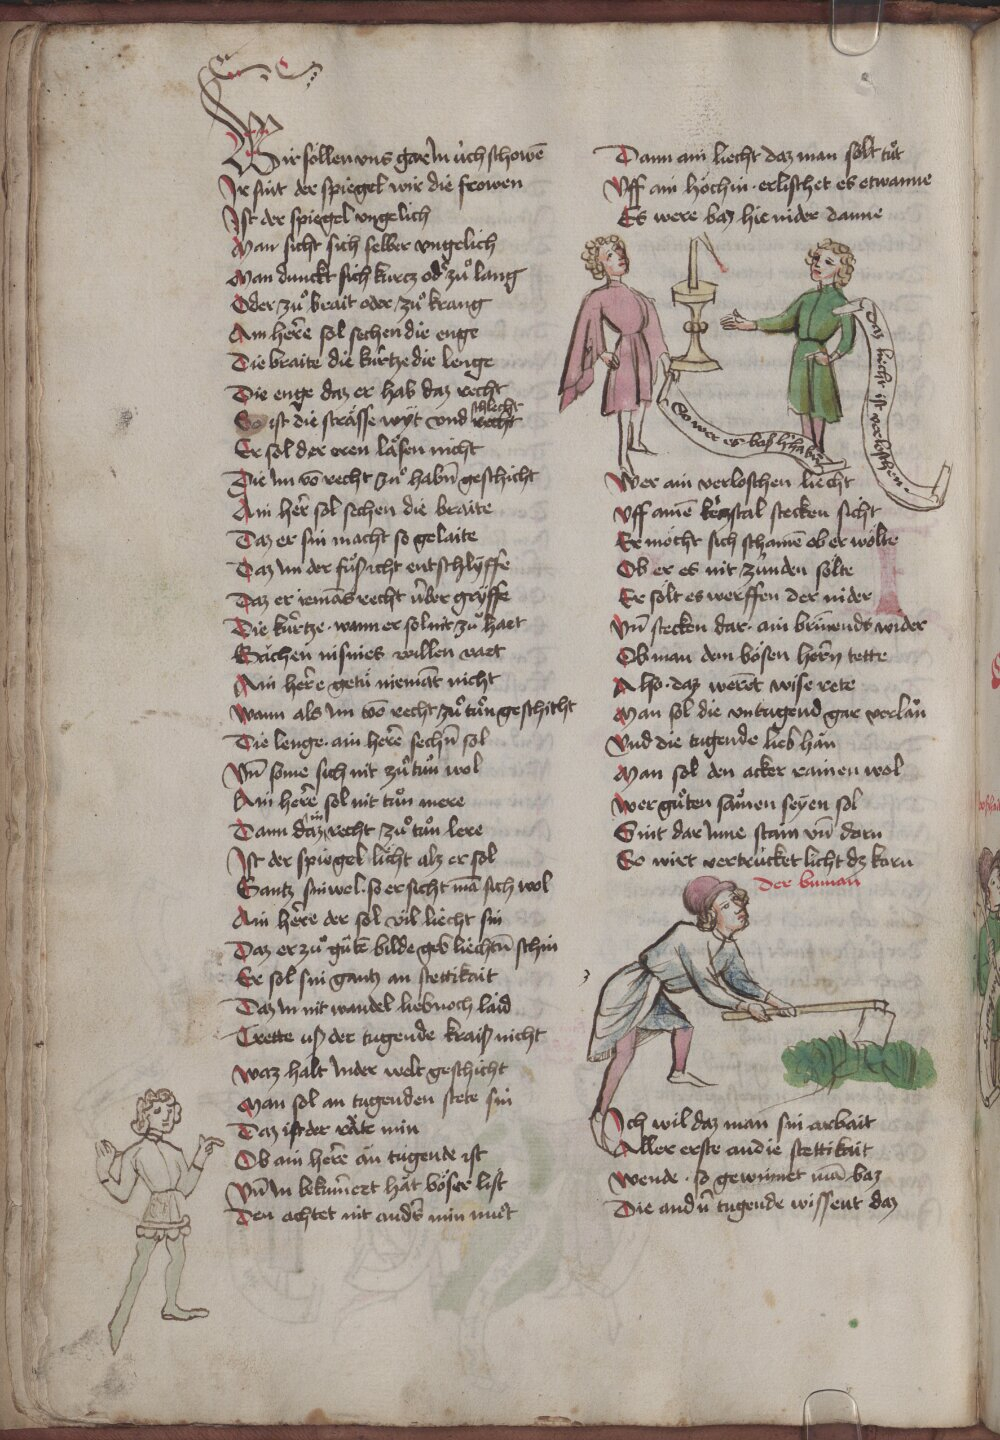 Wir sóllen vns gar Jn úch schowē
Jr sint der spiegel wir die frowen
Jst der spiegel vngelich
Man sicht sich selber vngelich
Man dunckt sich kurcz od° zuͦ lang
Oder zuͦ brait oder zuͦ krang
Ain herre sol sechen die enge
Die braite die kúrtze die lenge
Die enge daz er hab daz recht
So ist die strásse wyt vnd schlecht
Er sol der eren lásen nicht
Die Jm vō recht zuͦ habn̄ geschicht
Ain herr sol sechen die braite
Daz er sin macht so gelaite
Daz Jm der fuͦs icht entschlyffe
Daz er iemās recht úber gryffe
Die kúrtze · wann er sol nit zuͦ hart
Ráchen nisnies willen vart
Ain herre getú niemāt nicht
Wann als Jm vō recht zuͦ tuͦn geschicht
Die lenge · ain herē sechn̄ sol
Vn̄ sóme sich nit zuͦ tuͦn wol
Ain herre sol nit tuͦn mere
Dann daz im recht zuͦ tuͦn lere
Jst der spiegel licht alz er sol
Gantz sinwel · so ersicht mā sich wol
Ain herre der sol vil liecht sin
Daz er zuͦ guͦtē bilde geb liechtn̄ schin
Er sol sin gantz an stettikait
Daz Jn nit wandel lieb noch laid
Trette uß der tugende kraiß nicht
Waz halt Jn der welt geschicht
Man sol an tugenden stete sin
Daz ist der ráte min
Ob ain herre án tugende ist
Vn̄ Jn bekúm̄ert hát bóser list
Den achtet nit anders min muͦt
Dann ain liecht daz man sólt tuͦt
Vff ain hóchin · erlischet es etwanne
Es were baz hie nider danne
daz liecht ist verloschen ·
So wer es baß hie nider
Wer ain verloschen liecht
Vff aine kerzstal stecken sicht
Er mócht sich schamē ob er wólte
Ob er es nit zúnden sólte
Er sólt es werffen der nider
Vn̄ stecken dar · ain brinnends wider
Ob man dem bósen hern̄ tette
Also · daz werot wise rete
Man sol die vntugend gar verlán
Vnd die tugende lieb hán
Man sol den acker rainen wol
Wer guͦten sáumen seyen sol
Sint dar Jnne stain vn̄ dorn
So wirt vertrúcket licht dz korn
Der buman
Jch wil daz man sin arbait
Aller erste an die stettikait
Wende · so gewinnet mā baz
Die andn̄ tugende wissent daz